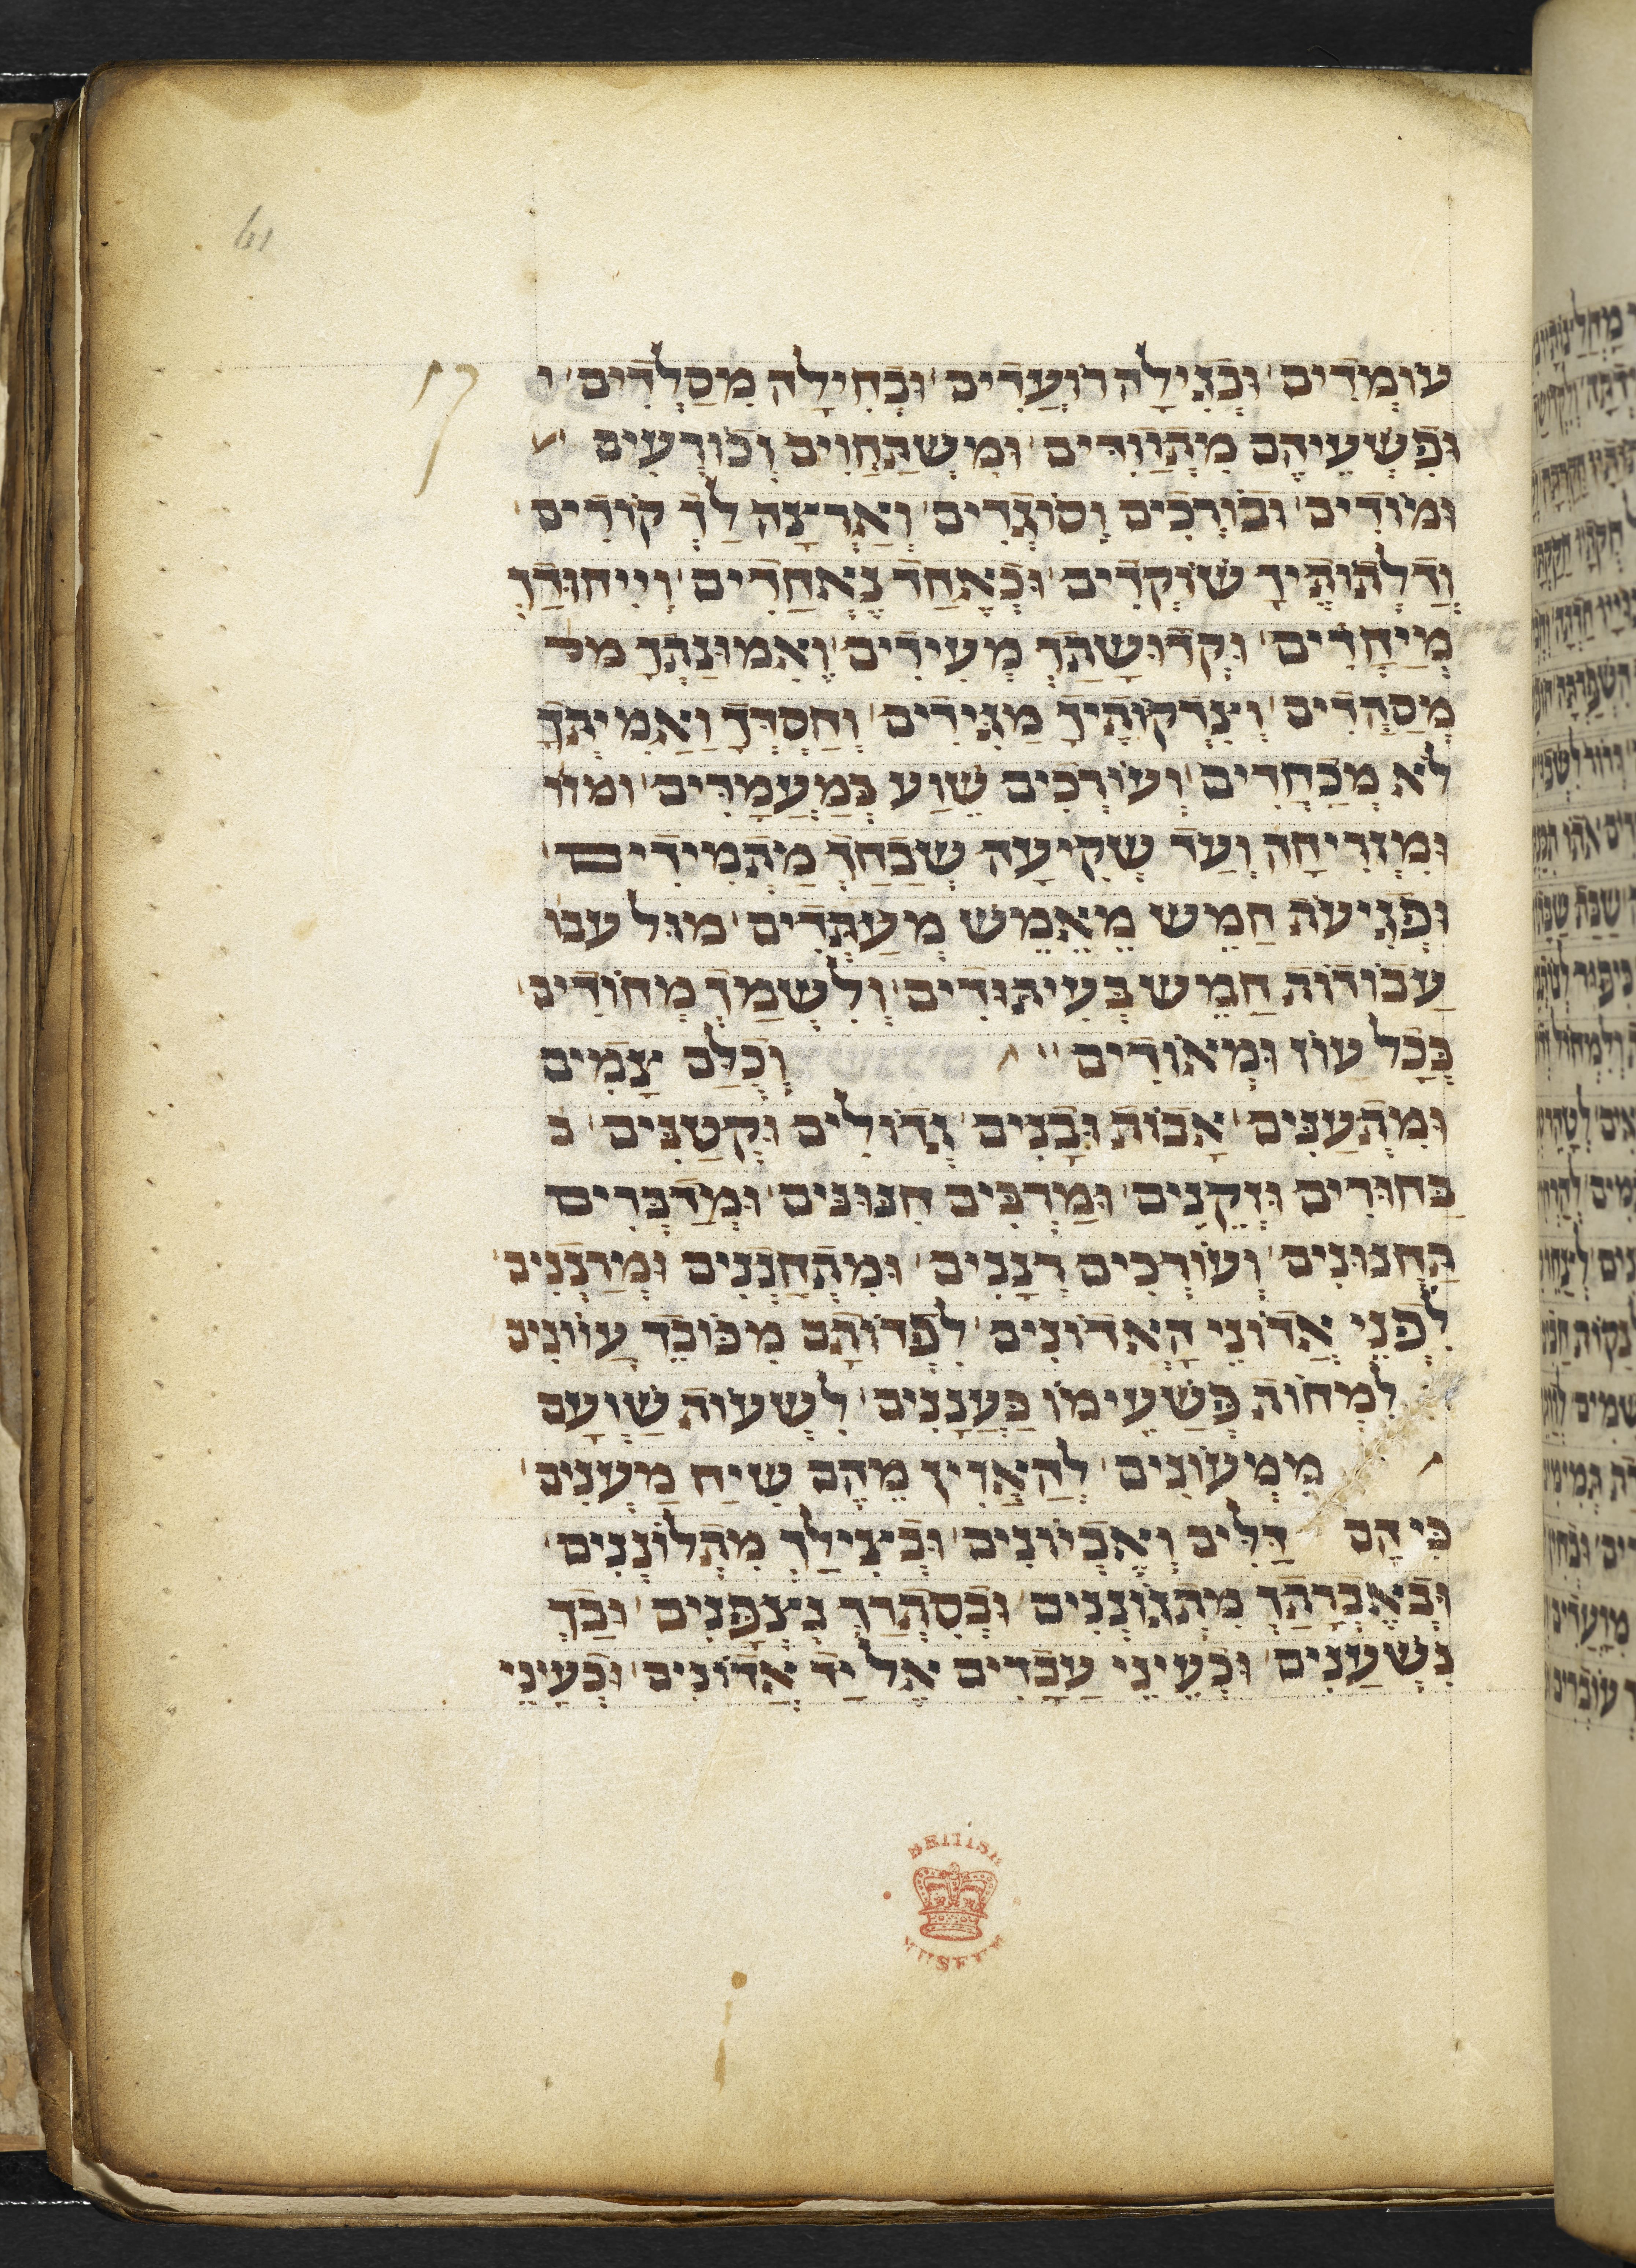 עוֹמְדִים וּבְגִילָה רוֹעֲדִים וּבְחִילָה מְסַלְדִים י
וּפִשְׁעֵיהֶם מִתְוַדִּים וּמִשְׁתַּחֲוִים וְכוֹרְעִים
וּמוֹדִים וּבוֹרְכִים וְסוֹגְדִים וְאַרְצָה לָךְ קוֹדִים
וְדַלְתוֹתֶיךָ שׁוֹקְדִים וּכְאֶחָד נֶאֱחָדִים וְיִיחוּדָךְ
מְיַחֲדִים וּקְדוּשָׁתָךְ מְעִידִים וֶאֱמוּנָתְךָ מל
מְסַהֲדִים וְצִדְקוֹתֶיךָ מַגִּידִים וְחַסְדְּךָ וַאֲמִיתְּךָ
לֹא מְכַחֲדִים וְעוֹרְכִים שֶׁוַע בְּמַעֲמָדִים ומזו
וּמִזְּרִיחָה וְעַד שְׁקִיעָה שְׁבָחֲךָ מַתְמִידִים
וּפְגִיעֹת חָמֵשׁ מֵאֶמֶשׁ מְעַתְּדִים מול ענו
עֲבוֹדוֹת חָמֵשׁ בְּעִיתּוּדִים וְלִשְׁמָךְ מְחוֹדִים
בְּכָל עוֹז וּמְאוֹדִים וְכֻלָּם צָמִים
וּמִתְעַנִּים אָבוֹת וּבָנִים גְּדוֹלִים וּקְטַנִּים ב
בַּחוּרִים וּזְקֵנִים וּמַרְבִּים חִנּוּנִים וּמְדַבְּרִים
תַּחֲנוּנִים וְעוֹרְכִים רְנָנִים וּמִתְחַנְּנִים וּמְרַנְּנִים
לִפְנֵי אֲדוֹנֵי הָאֲדוֹנִים לִפְדוֹתָם מִכּוֹבֶד עֲוֹונִים
לִמְחוֹת פְּשָׁעֵימוֹ כַּעֲנָנִים לִשְׁעוֹת שַׁוְעָם
מִמְּעוֹנִים לְהַאֲזִין מֵהֶם שִׂיחַ מַעֲנִים
כִּי הֵם דַּלִּים וְאֶבְיוֹנִים וּבְצִילָךְ מִתְלוֹנְנִים
וּבְאֶבְרָתָךְ מִתְגּוֹנְנִים וּבְסִתְרָךְ נִצְפָּנִים וּבָךְ
נִשְׁעָנִים וּכְעֵינֵי עֲבָדִים אֶל יַד אֲדוֹנִים וּכְעֵינֵי
61
BRITISH
MUSEUM